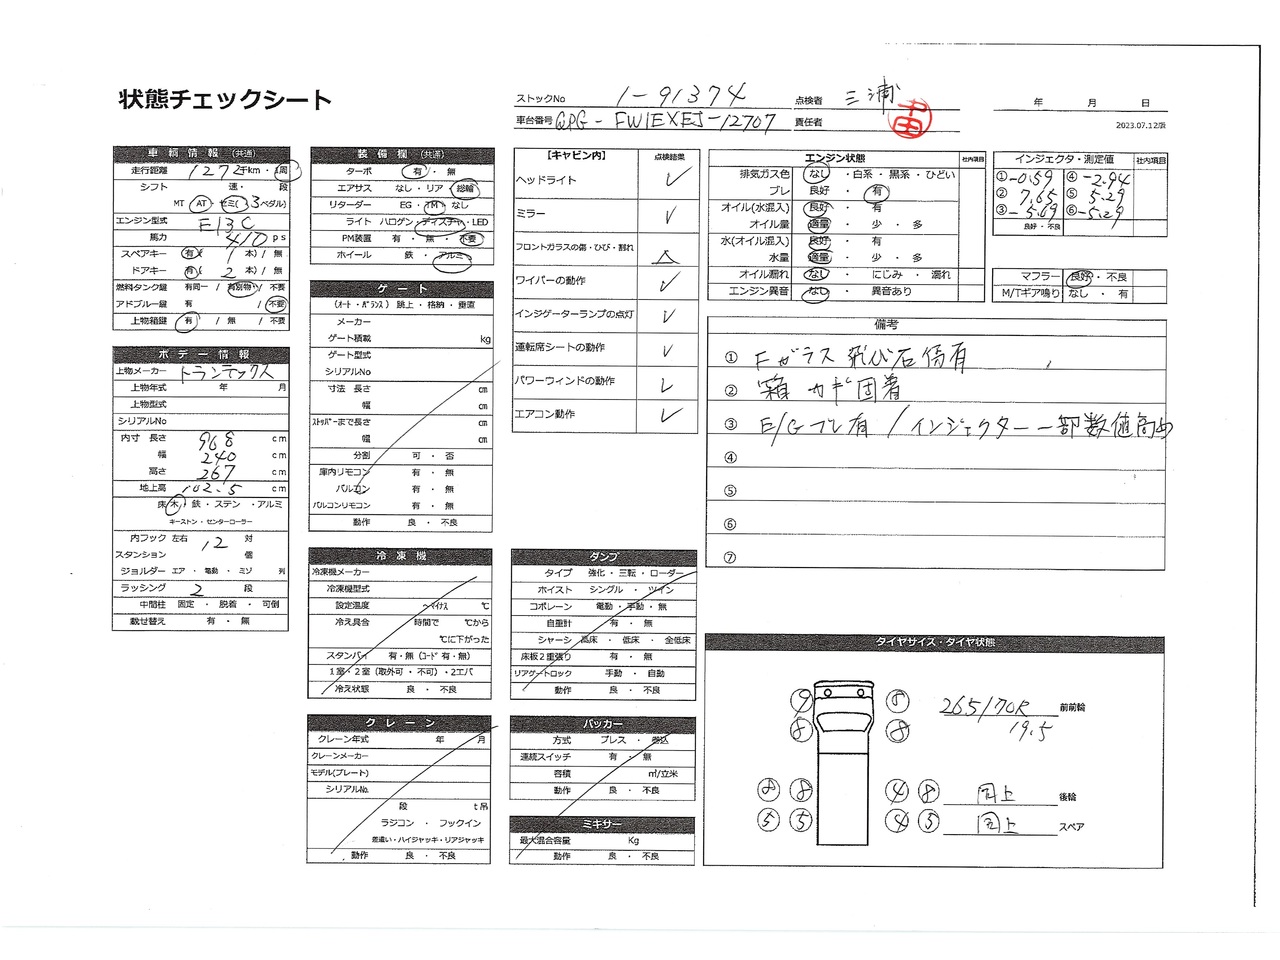 状態チェックシート
ストックNo 1-91374 点検者 三浦
車台番号 QPG-FW1EXEJ-12707 責任者
年 月 日
2023.07.12版
車輌情報 (共通)
走行距離 1272千km・1周
シフト 速・ 段
MT AT セミ( 3ペダル)
エンジン型式 E13C
馬力 410 ps
スペアキー 有( 1 本) / 無
ドアキー 有( 2 本) / 無
燃料タンク鍵 有同一 / 有別物 / 不要
アドブルー鍵 有 / 不要
上物箱鍵 有 / 無 / 不要
ボデー情報
上物メーカー トランテックス
上物年式 年 月
上物型式
シリアルNo
内寸 長さ 968 cm
幅 240 cm
高さ 267 cm
地上高 102.5 cm
床 木・鉄・ステン・アルミ
キーストン・センターローラー
内フック 左右 12 対
スタンション 個
ジョルダー エア・電動・ミゾ 列
ラッシング 2 段
中間柱 固定・脱着・可倒
載せ替え 有・無
装備欄 (共通)
ターボ 有・無
エアサス なし・リア・総輪
リターダー EG・TM・なし
ライト ハロゲン・ディスチャ・LED
PM装置 有・無・不要
ホイール 鉄・アルミ
ゲート
(オート・バランス) 跳上・格納・垂直
メーカー
ゲート積載 kg
ゲート型式
シリアルNo
寸法 長さ cm
幅 cm
ストッパーまで長さ cm
幅 cm
分割 可・否
庫内リモコン 有・無
バルコン 有・無
バルコンリモコン 有・無
動作 良・不良
冷凍機
冷凍機メーカー
冷凍機型式
設定温度 ～マイナス ℃
冷え具合 時間で ℃から
℃に下がった
スタンバイ 有・無 (コード 有・無)
1室・2室 (取外可・不可)・2エバ
冷え状態 良・不良
クレーン
クレーン年式 年 月
クレーンメーカー
モデル(プレート)
シリアルNo.
段 t吊
ラジコン・フックイン
差違い・ハイジャッキ・リアジャッキ
動作 良・不良
【キャビン内】 点検結果
ヘッドライト ✓
ミラー ✓
フロントガラスの傷・ひび・割れ △
ワイパーの動作 ✓
インジケーターランプの点灯 ✓
運転席シートの動作 ✓
パワーウィンドの動作 ✓
エアコン動作 ✓
ダンプ
タイプ 強化・三転・ローダー
ホイスト シングル・ツイン
コボレーン 電動・手動・無
自重計 有・無
シャーシ 高床・低床・全低床
床板2重張り 有・無
リアゲートロック 手動・自動
動作 良・不良
パッカー
方式 プレス・巻込
連続スイッチ 有・無
容積 ㎥/立米
動作 良・不良
ミキサー
最大混合容量 Kg
動作 良・不良
エンジン状態 社内項目
排気ガス色 なし・白系・黒系・ひどい
ブレ 良好・有
オイル(水混入) 良好・有
オイル量 適量・少・多
水(オイル混入) 良好・有
水量 適量・少・多
オイル漏れ なし・にじみ・漏れ
エンジン異音 なし・異音あり
インジェクタ・測定値 社内項目
①-0.59 ④-2.94
②7.65 ⑤5.29
③-5.69 ⑥-5.29
良好・不良
マフラー 良好・不良
M/Tギア鳴り なし・有
備考
① Fガラス 飛び石傷有
② 箱 カギ固着
③ E/Gブレ有 / インジェクター 一部数値高め
④
⑤
⑥
⑦
タイヤサイズ・タイヤ状態
9 8 265/70R 前前輪
8 8 19.5
8 8 4 8 同上 後輪
5 5 4 5 同上 スペア